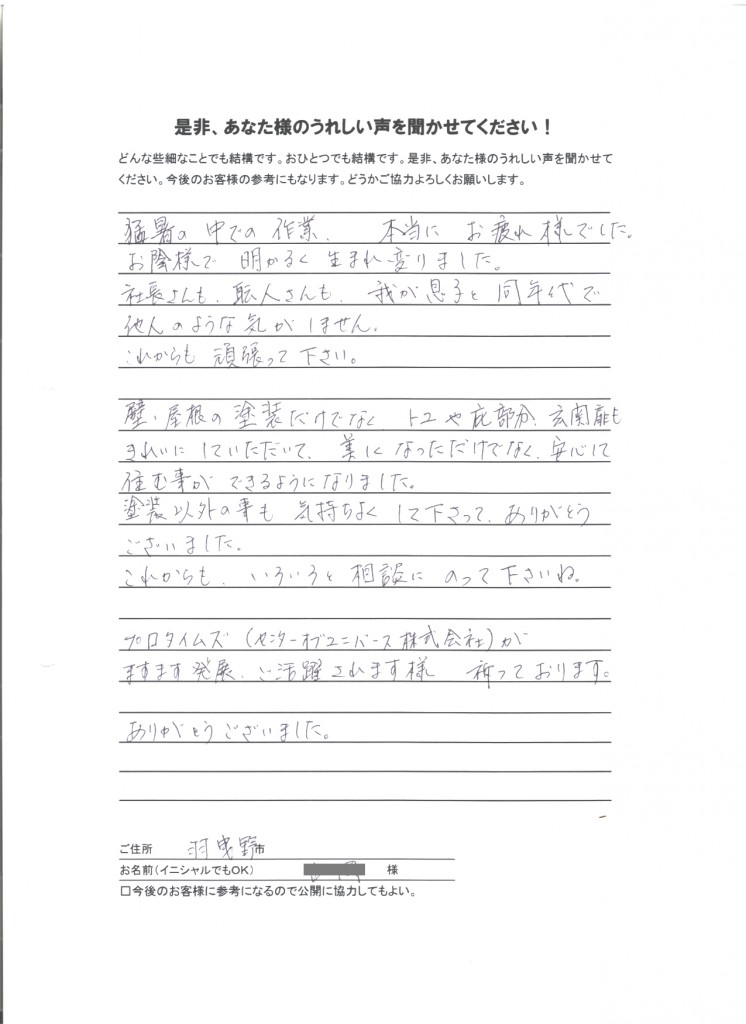 是非、あなた様のうれしい声を聞かせてください！
どんな些細なことでも結構です。おひとつでも結構です。是非、あなた様のうれしい声を聞かせて
ください。今後のお客様の参考にもなります。どうかご協力よろしくお願いします。
猛暑の中での作業、本当にお疲れ様でした。
お陰様で明かるく生まれ変りました。
社長さんも、職人さんも、我が息子と同年代で
他人のような気がしません。
これからも頑張って下さい。
壁・屋根の塗装だけでなくトユや庇部分、玄関扉も
きれいにしていただいて、美しくなっただけでなく、安心して
住む事ができるようになりました。
塗装以外の事も気持ちよくして下さって、ありがとう
ございました。
これからも、いろいろと相談にのって下さいね。
プロタイムズ(センターオブユニバース株式会社)が
ますます発展、ご活躍されます様祈っております。
ありがとうございました。
ご住所 羽曳野市
お名前(イニシャルでもOK) 様
□今後のお客様に参考になるので公開に協力してもよい。